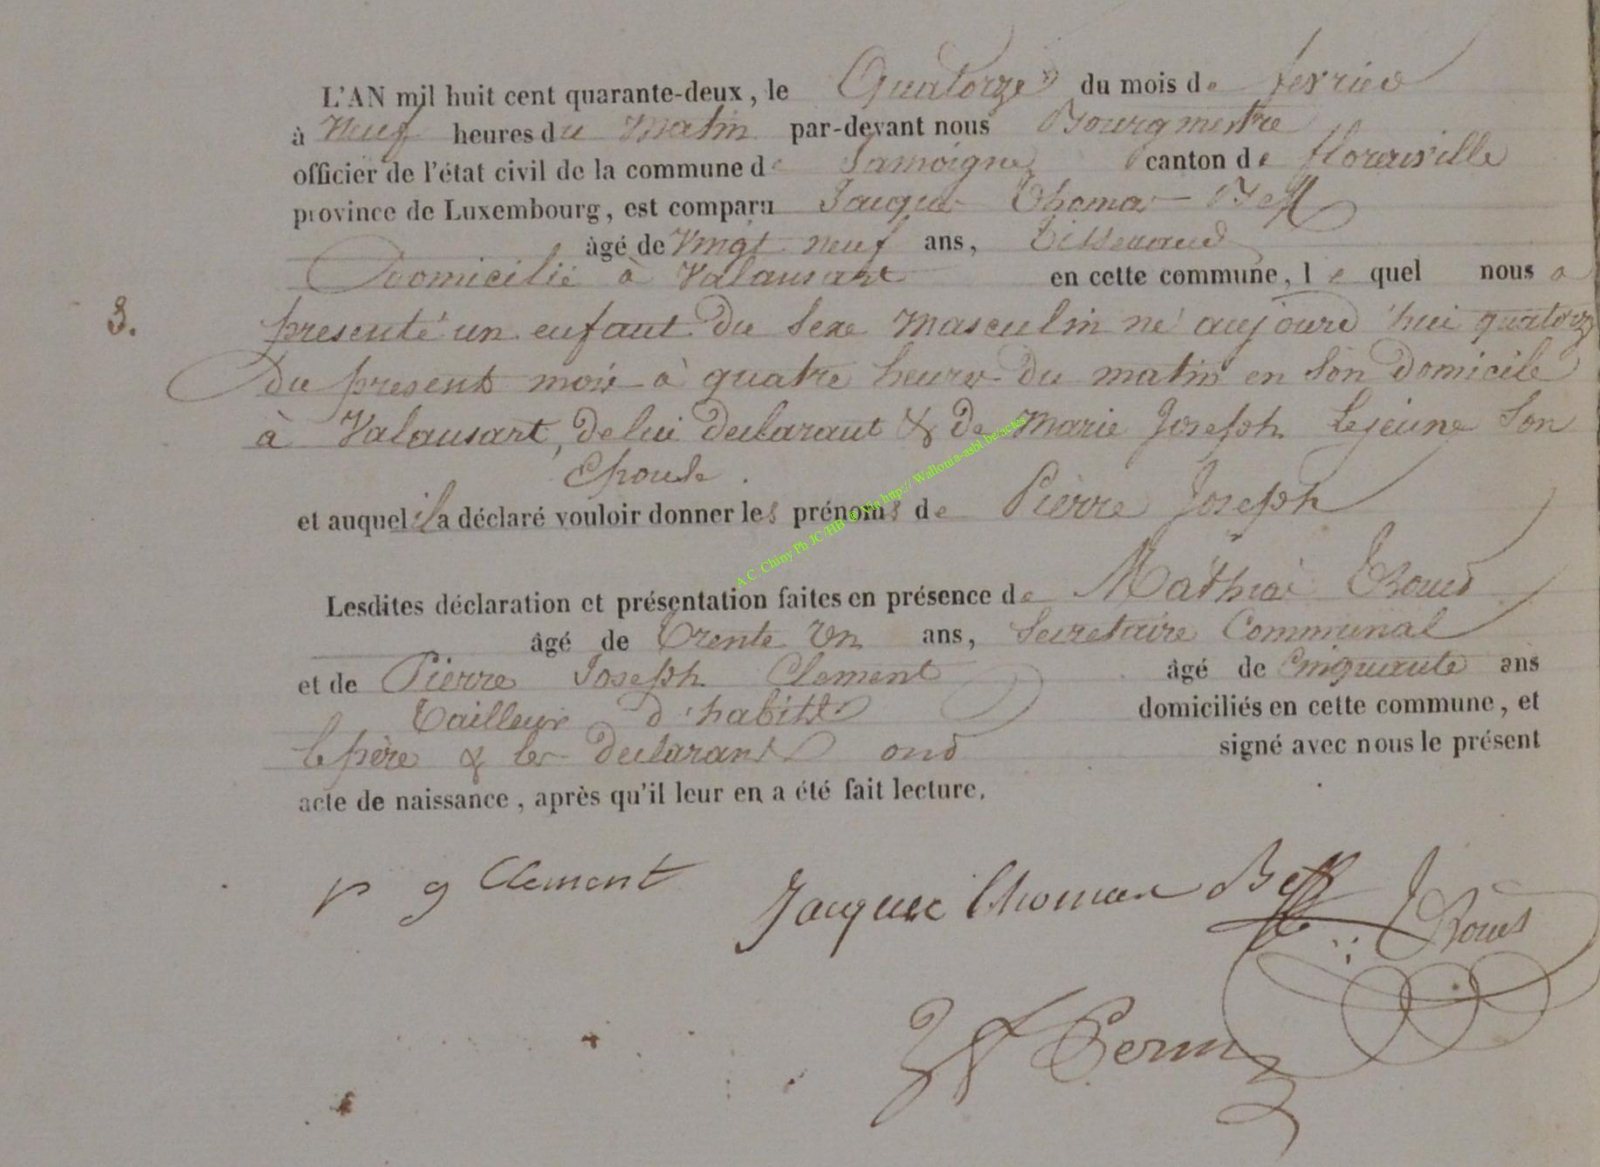 L'AN mil huit cent quarante-deux, le Quatorze du mois de fevrier
à Neuf heures du Matin par-devant nous Bourgmestre
officier de l'état civil de la commune de Jamoigne canton de florenville
province de Luxembourg, est comparu Jacques Thomas Beff
âgé de Vingt neuf ans, Tisserand
Domicilié à Valansart en cette commune, le quel nous a
3. presenté un enfant du sexe masculin né aujourd'hui quatorze
du present mois à quatre heures du matin en son domicile
à Valansart, de lui declarant & de Marie Joseph Lejeune son
Epouse.
et auquel il a déclaré vouloir donner les prénoms de Pierre Joseph
A.C. Chiny Pb JC/HB @ Via http://Wallonia-asbl.be/actes
Lesdites déclaration et présentation faites en présence de Mathias
âgé de Trente Un ans, Secretaire Communal
et de Pierre Joseph Clement âgé de Cinquante ans
Tailleur d'habits domiciliés en cette commune, et
le père & les declarants ond signé avec nous le présent
acte de naissance, après qu'il leur en a été fait lecture.
p j Clement Jacques Thomas Beff